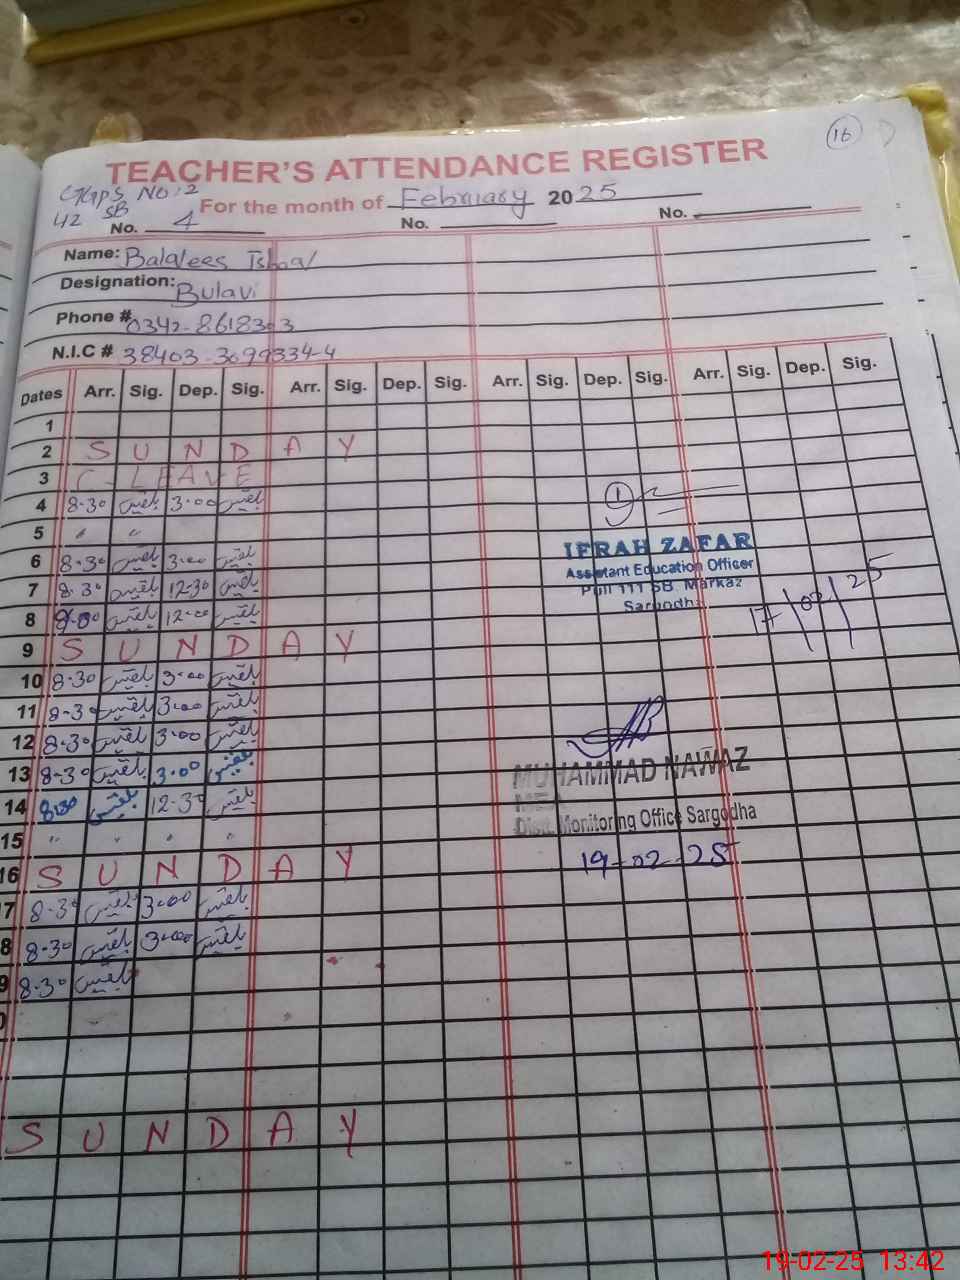 16
TEACHER'S ATTENDANCE REGISTER
GGPS NO:2
42 SB
For the month of February 2025
No. 4 No. No.
Name: Balalees
Designation: Bulavi
Phone # 0342-8618303
N.I.C # 38403-3099334-4
Dates Arr. Sig. Dep. Sig. Arr. Sig. Dep. Sig. Arr. Sig. Dep. Sig. Arr. Sig. Dep. Sig.
1
2 S U N D A Y
3 C-LEAVE
4 8-30 بلقیس 3-00 بلقیس
5 " "
6 8-30 بلقیس 3-00 بلقیس
7 8-30 بلقیس 12-30 بلقیس
8 بلقیس 12-00 بلقیس
9 S U N D A Y
10 8-30 بلقیس 3-00 بلقیس
11 8-30 بلقیس 3-00 بلقیس
12 8-30 بلقیس 3-00 بلقیس
13 8-30 بلقیس 3-00 بلقیس
14 8-30 بلقیس 12-30 بلقیس
15 " " " "
16 S U N D A Y
7 8-30 بلقیس 3-00 بلقیس
8 8-30 بلقیس 3-00 بلقیس
9 8-30 بلقیس
0
S U N D A Y
1
IFRAH ZAFAR
Assistant Education Officer
Pull 111 SB. Markaz
Sargodha
17/02/25
MUHAMMAD NAWAZ
MEA
Distt. Monitoring Office Sargodha
19-02-25
19-02-25 13:42